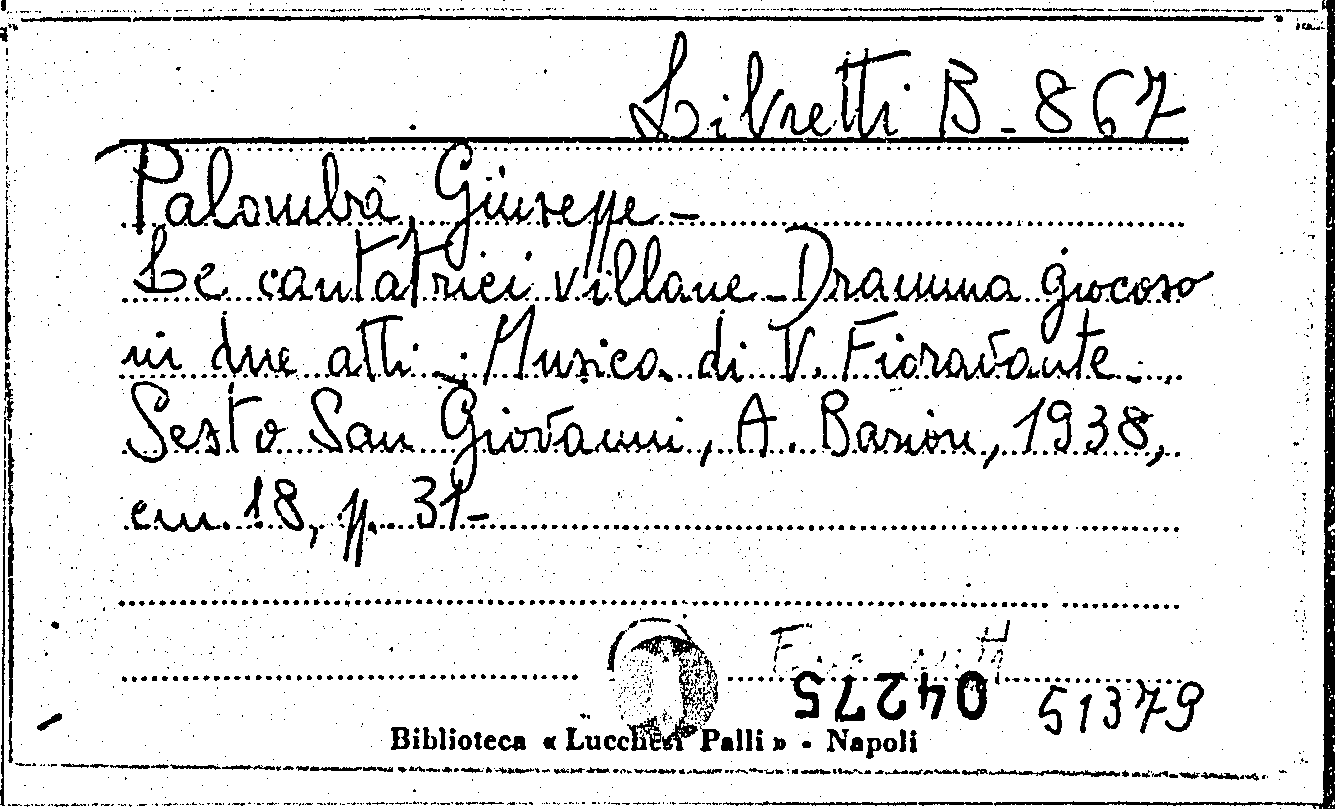 Libretti B - 867
Palomba, Giuseppe -
Le cantatrici villane - Dramma giocoso
in due atti - Musica di V. Fioravante -
Sesto San Giovanni, A. Barion, 1938,
cm. 18, pp. 31 -
04275
51379
Biblioteca « Lucchesi Palli » - Napoli